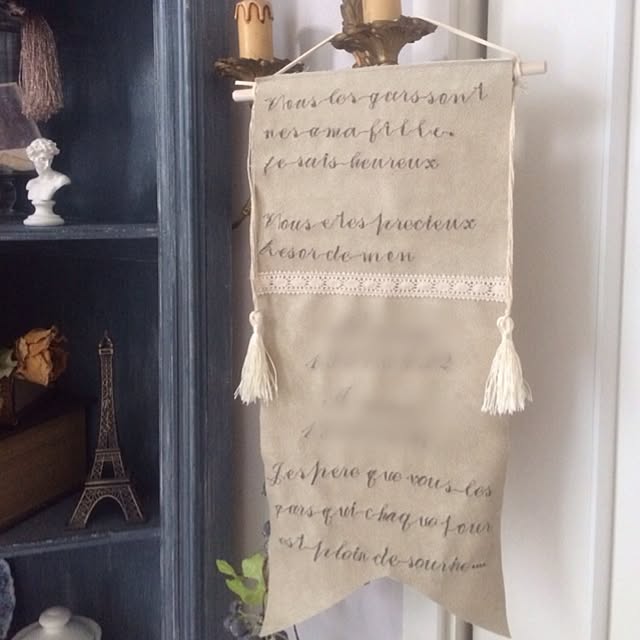 Vous les gars sont
nes a ma fille.
Je suis heureux
Vous etes precieux
tresor de mon
J'espere que vous les
gars qui chaque jour
est plein de sourire...